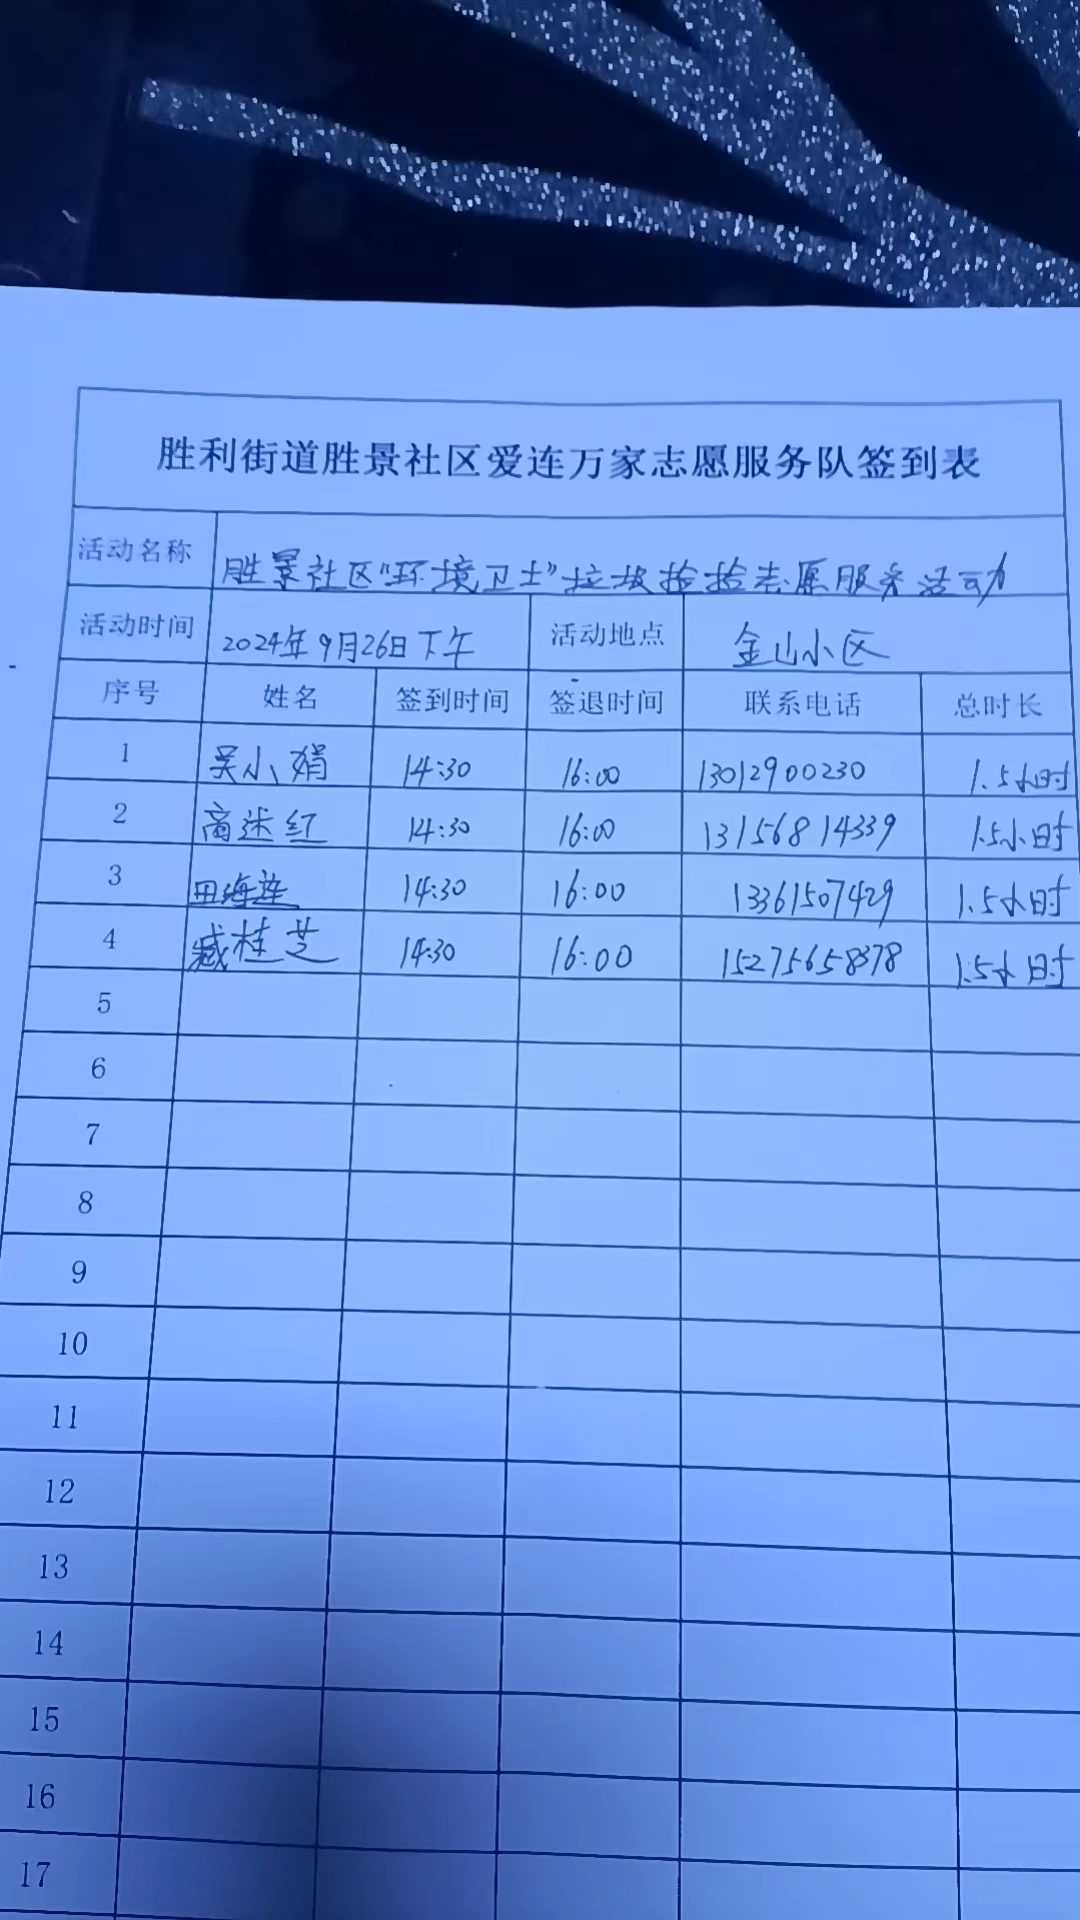 胜利街道胜景社区爱连万家志愿服务队签到表
活动名称 胜景社区“环境卫士”垃圾捡捡志愿服务活动
活动时间 2024年9月26日下午 活动地点 金山小区
序号 姓名 签到时间 签退时间 联系电话 总时长
1 吴小娟 14:30 16:00 13012900230 1.5小时
2 高述红 14:30 16:00 13156814339 1.5小时
3 田海莲 14:30 16:00 13361507429 1.5小时
4 臧桂芝 14:30 16:00 15275658378 1.5小时
5
6
7
8
9
10
11
12
13
14
15
16
17